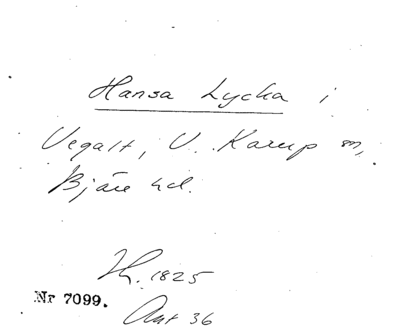 Hansa Lycka i
Vegalt, V. Karup sn,
Bjäre hd.
Th. 1825
Nr 7099.
Ant 36